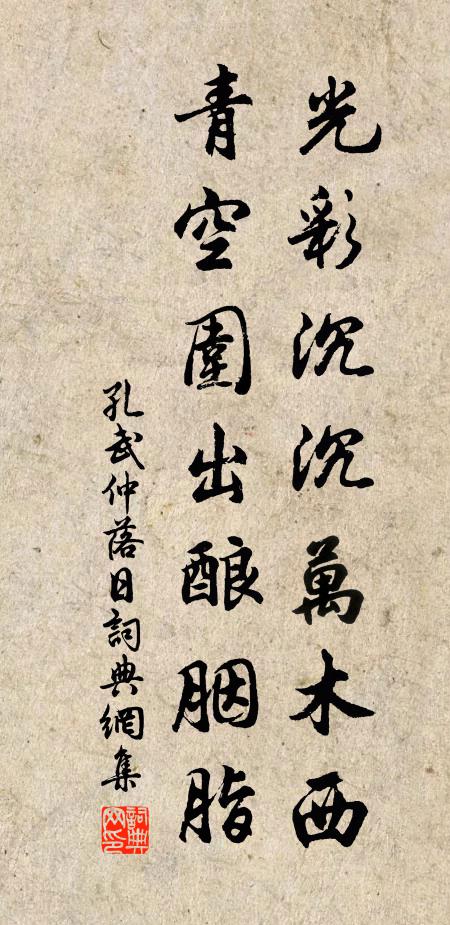 光彩沉沉萬木西
青空圍出酿胭脂
孔武仲落日詞典網集
詞典网印